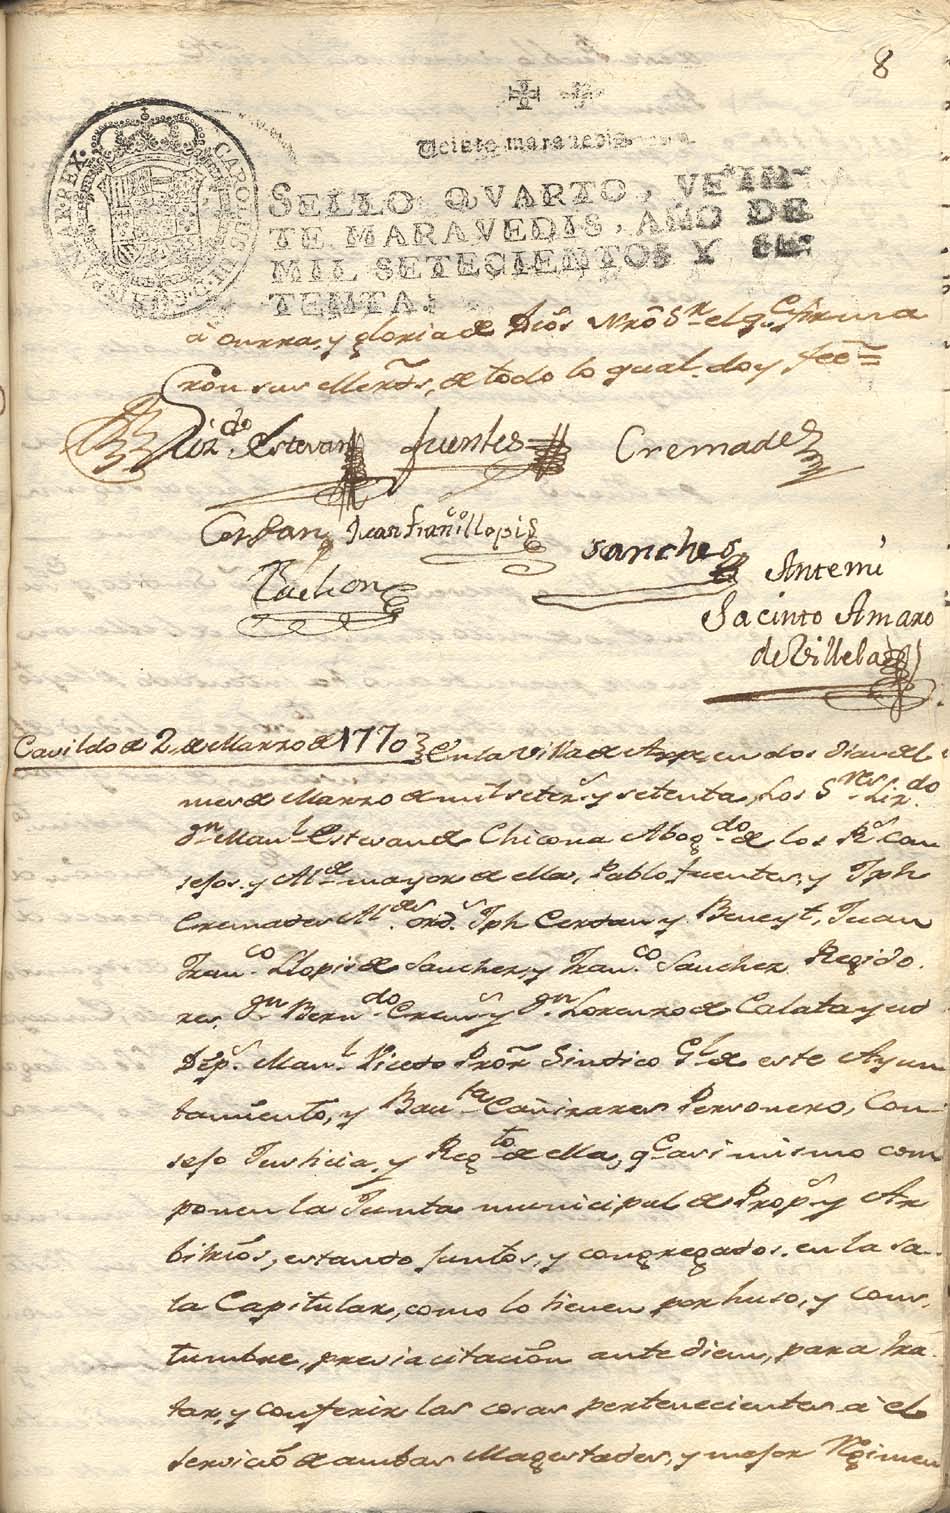 8
Veinte maravedis
SELLO QVARTO, VEIN-
TE MARAVEDIS, AÑO DE
MIL SETECIENTOS Y SE-
TENTA.
CAROLUS III D G HISPANIAR REX
à onrra, y gloria de Dios Nrõ Sr. el qe. firma
ron sus Merñs, de todo lo qual doy feè=
Lizdo. Estevan fuentes Cremades
Cerdan Juan Franco. Llopis
sanches Antemi
Jacinto Amaro
de Villela
Cavildo de 2, de Marzo de 1770 En la Villa de Aspe, en dos dias del
mes de Marzo de mil setes. y setenta, Los Sres. Lizdo.
Dn Manl. Estevan de Chicona Abogdo. de los Rs. Con
sejos, y Alde. mayor de ella, Pablo fuentes, y Jph
Cremades Aldes. ords. Jph Cerdan y Beneyt, Juan
Franco. Llopis de Sanchez, y Franco. Sanchez Regido.
res, Dn Berndo. Crems. y Dn. Lorenzo de Calatayud
Dips. Manl. Vicedo Prõr Sindico Gl. de este Ayun
tamiento, y Bauta. Cañizares Personero, Con
sejo Justicia, y Regto. de ella, qe. asi mismo com
ponen la Junta municipal de Props. y Ar
bitrios, estando juntos, y congregados, en la sa-
la Capitular, como lo tienen por huso, y cons.
tumbre, previa citacion ante diem, para tra
tar, y conferir las cosas pertenecientes a el
servicio de ambas Magestades, y mejor Regimen